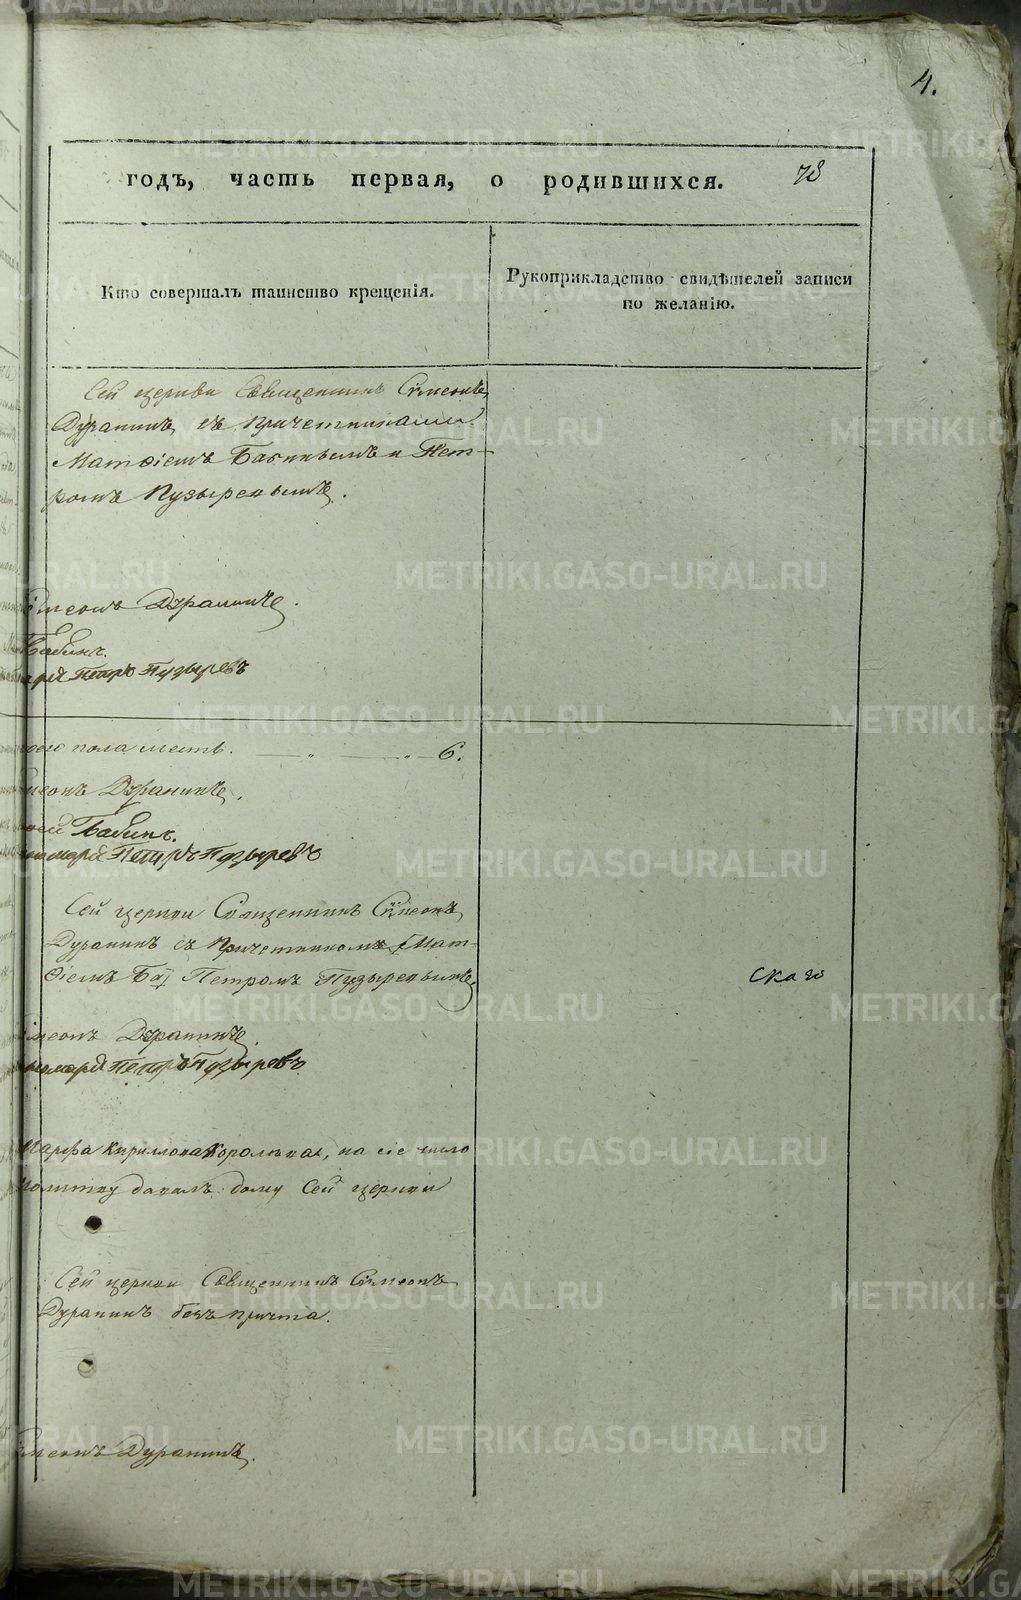 4.
годъ, часть первая, о родившихся. 78
Кто совершалъ таинство крещенія.
Рукоприкладство свидѣтелей записи
по желанію.
Сей церкви Священникъ Сѵмеонъ
Дуранинъ, съ причетниками
Матѳіемъ Бабинымъ и Пет-
ромъ Пузыревымъ.
Дуранинъ.
Бабинъ.
Петръ Пузыревъ
пола шесть. " " 6.
Дуранинъ.
Бабинъ.
Петръ Пузыревъ
Сей церкви Священникъ Сѵмеонъ
Дуранинъ съ причетникомъ Мат-
ѳіемъ Ба Петромъ Пузыревымъ.
скаго
Дуранинъ.
Петръ Пузыревъ
Марѳа Кириллова на сіе число
дому Сей церкви
Сей церкви Священникъ Сѵмеонъ
Дуранинъ безъ причта.
Дуранинъ.
METRIKI.GASO-URAL.RU